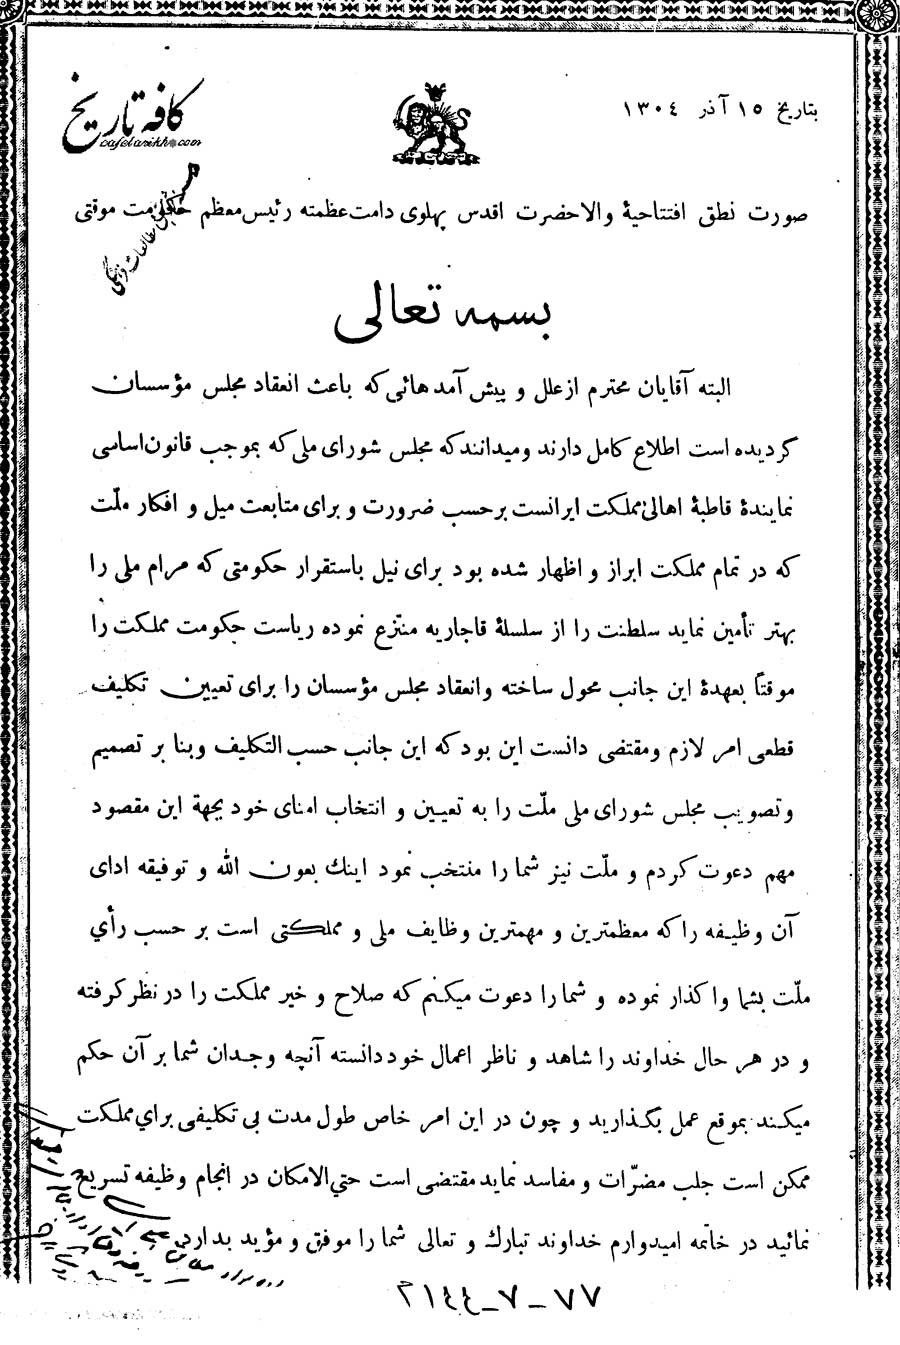 بتاریخ ۱۵ آذر ۱۳۰۴
کافه تاریخ
cafetarikh.com
صورت نطق افتتاحیهٔ والاحضرت اقدس پهلوی دامت عظمته رئیس معظم حکومت موقتی
بسمه تعالی
البته آقایان محترم از علل و پیش آمدهائی که باعث انعقاد مجلس مؤسسان
گردیده است اطلاع کامل دارند ومیدانند که مجلس شورای ملی که بموجب قانون اساسی
نمایندهٔ قاطبهٔ اهالیٔ مملکت ایرانست برحسب ضرورت و برای متابعت میل و افکار ملّت
که در تمام مملکت ابراز و اظهار شده بود برای نیل باستقرار حکومتی که مرام ملی را
بهتر تأمین نماید سلطنت را از سلسلهٔ قاجاریه منتزع نموده ریاست حکومت مملکت را
موقتاً بعهدهٔ این جانب محول ساخته وانعقاد مجلس مؤسسان را برای تعیین تکلیف
قطعی امر لازم ومقتضی دانست این بود که این جانب حسب التکلیف وبنا بر تصمیم
وتصویب مجلس شورای ملی ملّت را به تعیین و انتخاب امنای خود بجهة این مقصود
مهم دعوت کردم و ملّت نیز شما را منتخب نمود اینك بعون الله و توفیقه ادای
آن وظیفه را که معظمترین و مهمترین وظایف ملی و مملکتی است بر حسب رأي
ملّت بشما واکذار نموده و شما را دعوت میکنم که صلاح و خیر مملکت را در نظر گرفته
و در هر حال خداوند را شاهد و ناظر اعمال خود دانسته آنچه وجدان شما بر آن حکم
میکند بموقع عمل بگذارید و چون در این امر خاص طول مدت بی تکلیفی براي مملکت
ممکن است جلب مضرّات و مفاسد نماید مقتضی است حتي الامکان در انجام وظیفه تسریع
نمائید در خاتمه امیدوارم خداوند تبارك و تعالی شما را موفق و مؤید بدارد